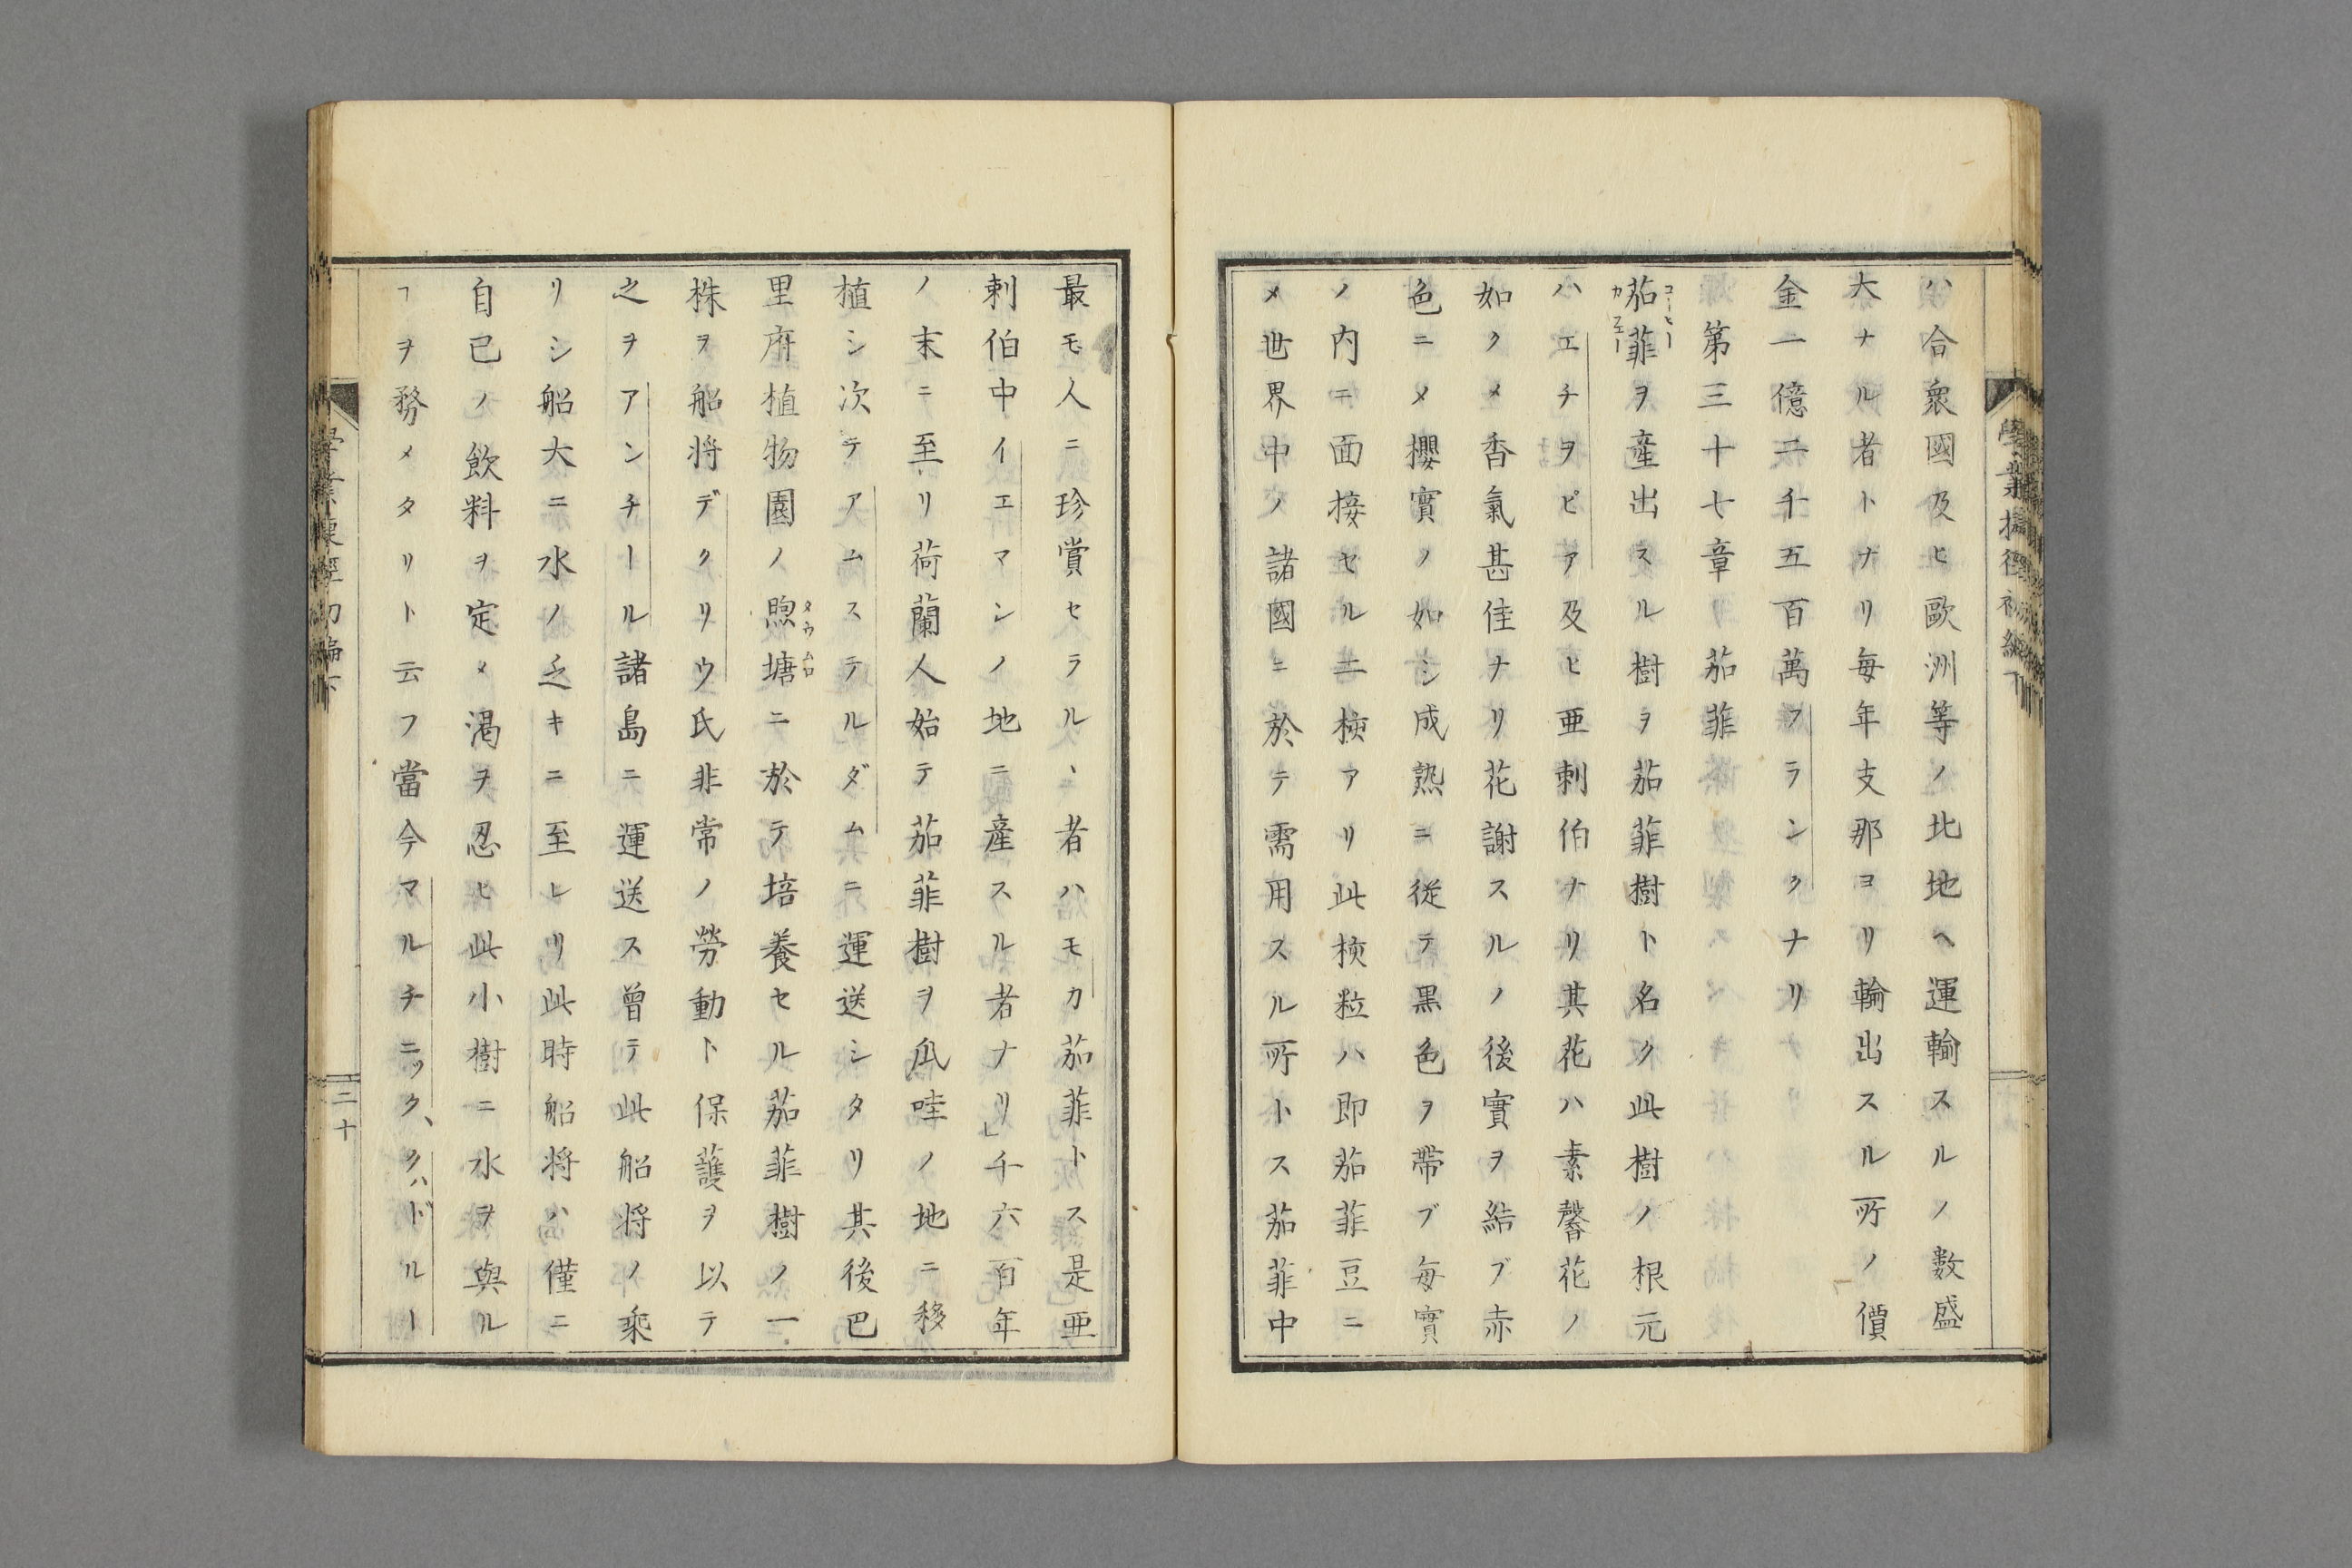 ハ合衆國及ヒ歐洲等ノ北地ヘ運輸スルノ数盛
大ナル者トナリ毎年支那ヨリ輸出スル所ノ價
金一億二千五百萬フランクナリ
第三十七章 茄菲
茄菲ヲ産出スル樹ヲ茄菲樹ト名ク此樹ノ根元
コーヒー
カフエー
ハエチヲピア及ヒ亜剌伯ナリ其花ハ素馨花ノ
如クメ香氣甚佳ナリ花謝スルノ後實ヲ結ブ赤
色ニメ櫻實ノ如シ成熟ニ従テ黒色ヲ帶ブ毎實
ノ内ニ面接セル二核アリ此核粒ハ即茄菲豆ニ
メ世界中ノ諸國ニ於テ需用スル所トス茄菲中
最モ人ニ珍賞セラルヽ者ハモカ茄菲トス是亜
剌伯中イエマンノ地ニ産スル者ナリ」千六百年
ノ末ニ至リ荷蘭人始テ茄菲樹ヲ瓜哇ノ地ニ移
植シ次テアムステルダムニ運送シタリ其後巴
里府植物園ノ煦塘ニ於テ培養セル茄菲樹ノ一
ムロ
株ヲ船将デクリウ氏非常ノ勞動ト保護ヲ以テ
之ヲアンチール諸島ニ運送ス曾テ此船将ノ乗
リシ船大ニ水ノ乏キニ至レリ此時船将ハ僅ニ
自己ノ飲料ヲ定メ渇ヲ忍ヒ此小樹ニ水ヲ與ル
ヿヲ務メタリト云フ當今マルチニック、クハドルー
學業捷徑初編下
二十